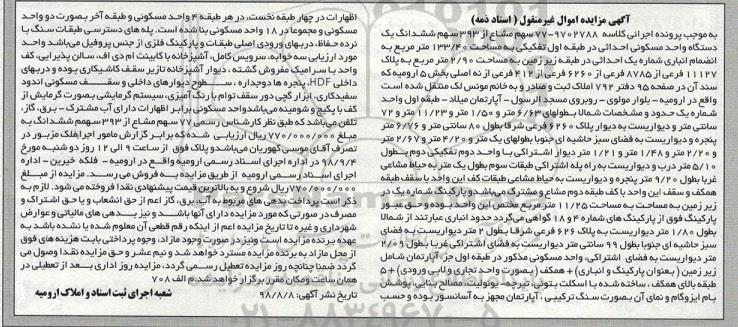 آگهی مزایده اموال غیرمنقول ( اسناد ذمه)
به موجب پرونده اجرائی کلاسه ۹۷۰۲۷۸۸-۷۷ سهم مشاع از ۳۹۳ سهم ششدانگ یک
دستگاه واحد مسکونی احداثی در طبقه اول تفکیکی به مساحت ۱۳۳/۴۰ متر مربع به
انضمام انباری شماره یک احداثی در طبقه زیر زمین به مساحت ۲/۹۰ متر مربع به پلاک
۱۱۱۲۷ فرعی از ۸۷۸۵ فرعی از ۶۲۶۰ فرعی از ۴۱۲ فرعی از نه اصلی بخش ۵ ارومیه که
سند آن در صفحه ۹۵ دفتر ۷۹۲ املاک ثبت و صادر و به خانم مونس لک منتقل شده است
واقع در ارومیه - بلوار مولوی - روبروی مسجد الرسول - آپارتمان میلاد - طبقه اول واحد
شماره یک حدود و مشخصات شمالا بطولهای ۶/۶۳ متر و ۱/۵۰ متر و ۱۱/۲۳ متر و ۷۲
سانتی متر و دیواریست به دیوار پلاک ۶۲۶۰ فرعی شرقا بطول ۸۰ سانتی متر و ۶/۷۶ متر
پنجره و دیواریست به فضای سبز حاشیه ای جنوبا بطولهای یک متر و ۴/۲۰ متر و ۲/۶۷ متر
و ۲/۲۰ متر و ۱/۴۸ متر و ۱/۲۱ متر دیوار اشتراکی با واحد دوم تفکیکی دوم بطول
۵/۱۰ متر درب و دیواریست به راه پله اشتراکی طبقات سوم بطول یک متر به حیاط مشاعی
غربا بطول ۹/۲۰ متر پنجره و دیواریست به حیاط مشاعی طبقات کف این واحد با سقف طبقه
همکف و سقف این واحد با کف طبقه دوم مشاع و مشترک میباشد و پارکینگ شماره یک در
زیر زمین به مساحت به مساحت ۱۱/۲۵ متر مربع مختص این واحد بوده و حق عبور
پارکینگ فوق از پارکینگ های شماره ۴ و ۱۸ گواهی میگردد حدود انباری عبارتند از شمالا
بطول ۱/۸۰ متر دیواریست به پلاک ۶۲۶ فرعی شرقا بطول ۲ متر دیواریست به فضای
سبز حاشیه ای جنوبا بطول ۹۹ سانتی متر دیواریست به فضای اشتراکی غربا بطول ۲/۰۹
متر دیواریست به فضای اشتراکی، واحد مسکونی مذکور در طبقه اول جزء آپارتمان شامل
زیر زمین (بعنوان پارکینگ و انباری) + همکف (بصورت واحد تجاری و لابی ورودی) + ۵
طبقه بالای همکف ، ساخته شده با اسکلت بتونی تیرچه - یونولیت، مصالح بنایی پوشش
بام ایزوگام و نمای آن بصورت سنگ ترکیبی ، آپارتمان مجهز به آسانسور بوده و حسب
اظهارات در چهار طبقه نخست، در هر طبقه ۴ واحد مسکونی و طبقه آخر بصورت دو واحد
مسکونی و مجموعا در ۱۸ واحد مسکونی بنا شده است. پله های دسترسی طبقات سنگ با
نرده حفاظ، دربهای ورودی اصلی طبقات و پارکینگ فلزی از جنس پروفیل می‌باشد واحد
مورد ارزیابی سه خوابه، سرویس کامل، آشپزخانه با کابینت ام دی اف، سالن پذیرایی، کف
واحد با سرامیک مفروش گشته ، دیوار آشپزخانه تا زیر سقف کاشیکاری بوده و دربهای
داخلی HDF، پنجره ها دوجداره ، سطوح دیوارهای داخلی و سقف مسکونی اندود
سفیدکاری، ابزار گچی دور سقف توام با رنگ آمیزی، سیستم گرمایشی بصورت گرمایش از
کف با پکیج و شومینه می‌باشد واحد مسکونی برابر اظهارات دارای آب مشترک - برق، گاز،
تلفن می‌باشد که طبق نظر کارشناس رسمی ۷۷ سهم مشاع از ۳۹۳ سهم ششدانگ به
مبلغ ۷۷۰/۰۰۰/۰۰۰ ریال ارزیابی شده که برابر گزارش مامور اجرا ملک مزبور در
تصرف آقای موسی گهوریان می‌باشد و پلاک فوق از ساعت ۹ الی ۱۲ روز دو شنبه مورخ
۹۸/۹/۴ در اداره اجرای اسناد رسمی ارومیه واقع در ارومیه - فلکه خیرین - اداره
اجرای اسناد رسمی ارومیه از طریق مزایده به فروش می رسد. مزایده از مبلغ
۷۷۰/۰۰۰/۰۰۰ ریال شروع و به بالاترین قیمت پیشنهادی نقدا فروخته می شود. لازم به
ذکر است پرداخت بدهی های مربوط به آب، برق، گاز اعم از حق انشعاب و یا حق اشتراک و
مصرف در صورتی که مورد مزایده دارای آنها باشد و نیز بدهی های مالیاتی و عوارض
شهرداری و غیره تا تاریخ مزایده اعم از اینکه رقم قطعی آن معلوم شده یا نشده باشد به
عهده برنده مزایده است و نیز در صورت وجود مازاد، وجوه پرداختی بابت هزینه های فوق
از محل مازاد به برنده مزایده مسترد خواهد شد و نیم عشر و حق مزایده نقدا وصول می
گردد ضمنا چنانچه روز مزایده تعطیل رسمی گردد، مزایده روز اداری بعد از تعطیلی در
همان ساعت و مکان مقرر برگزار خواهد شد م الف ۷۰۸
تاریخ نشر آگهی: ۹۸/۸/۸ شعبه اجرای ثبت اسناد و املاک ارومیه